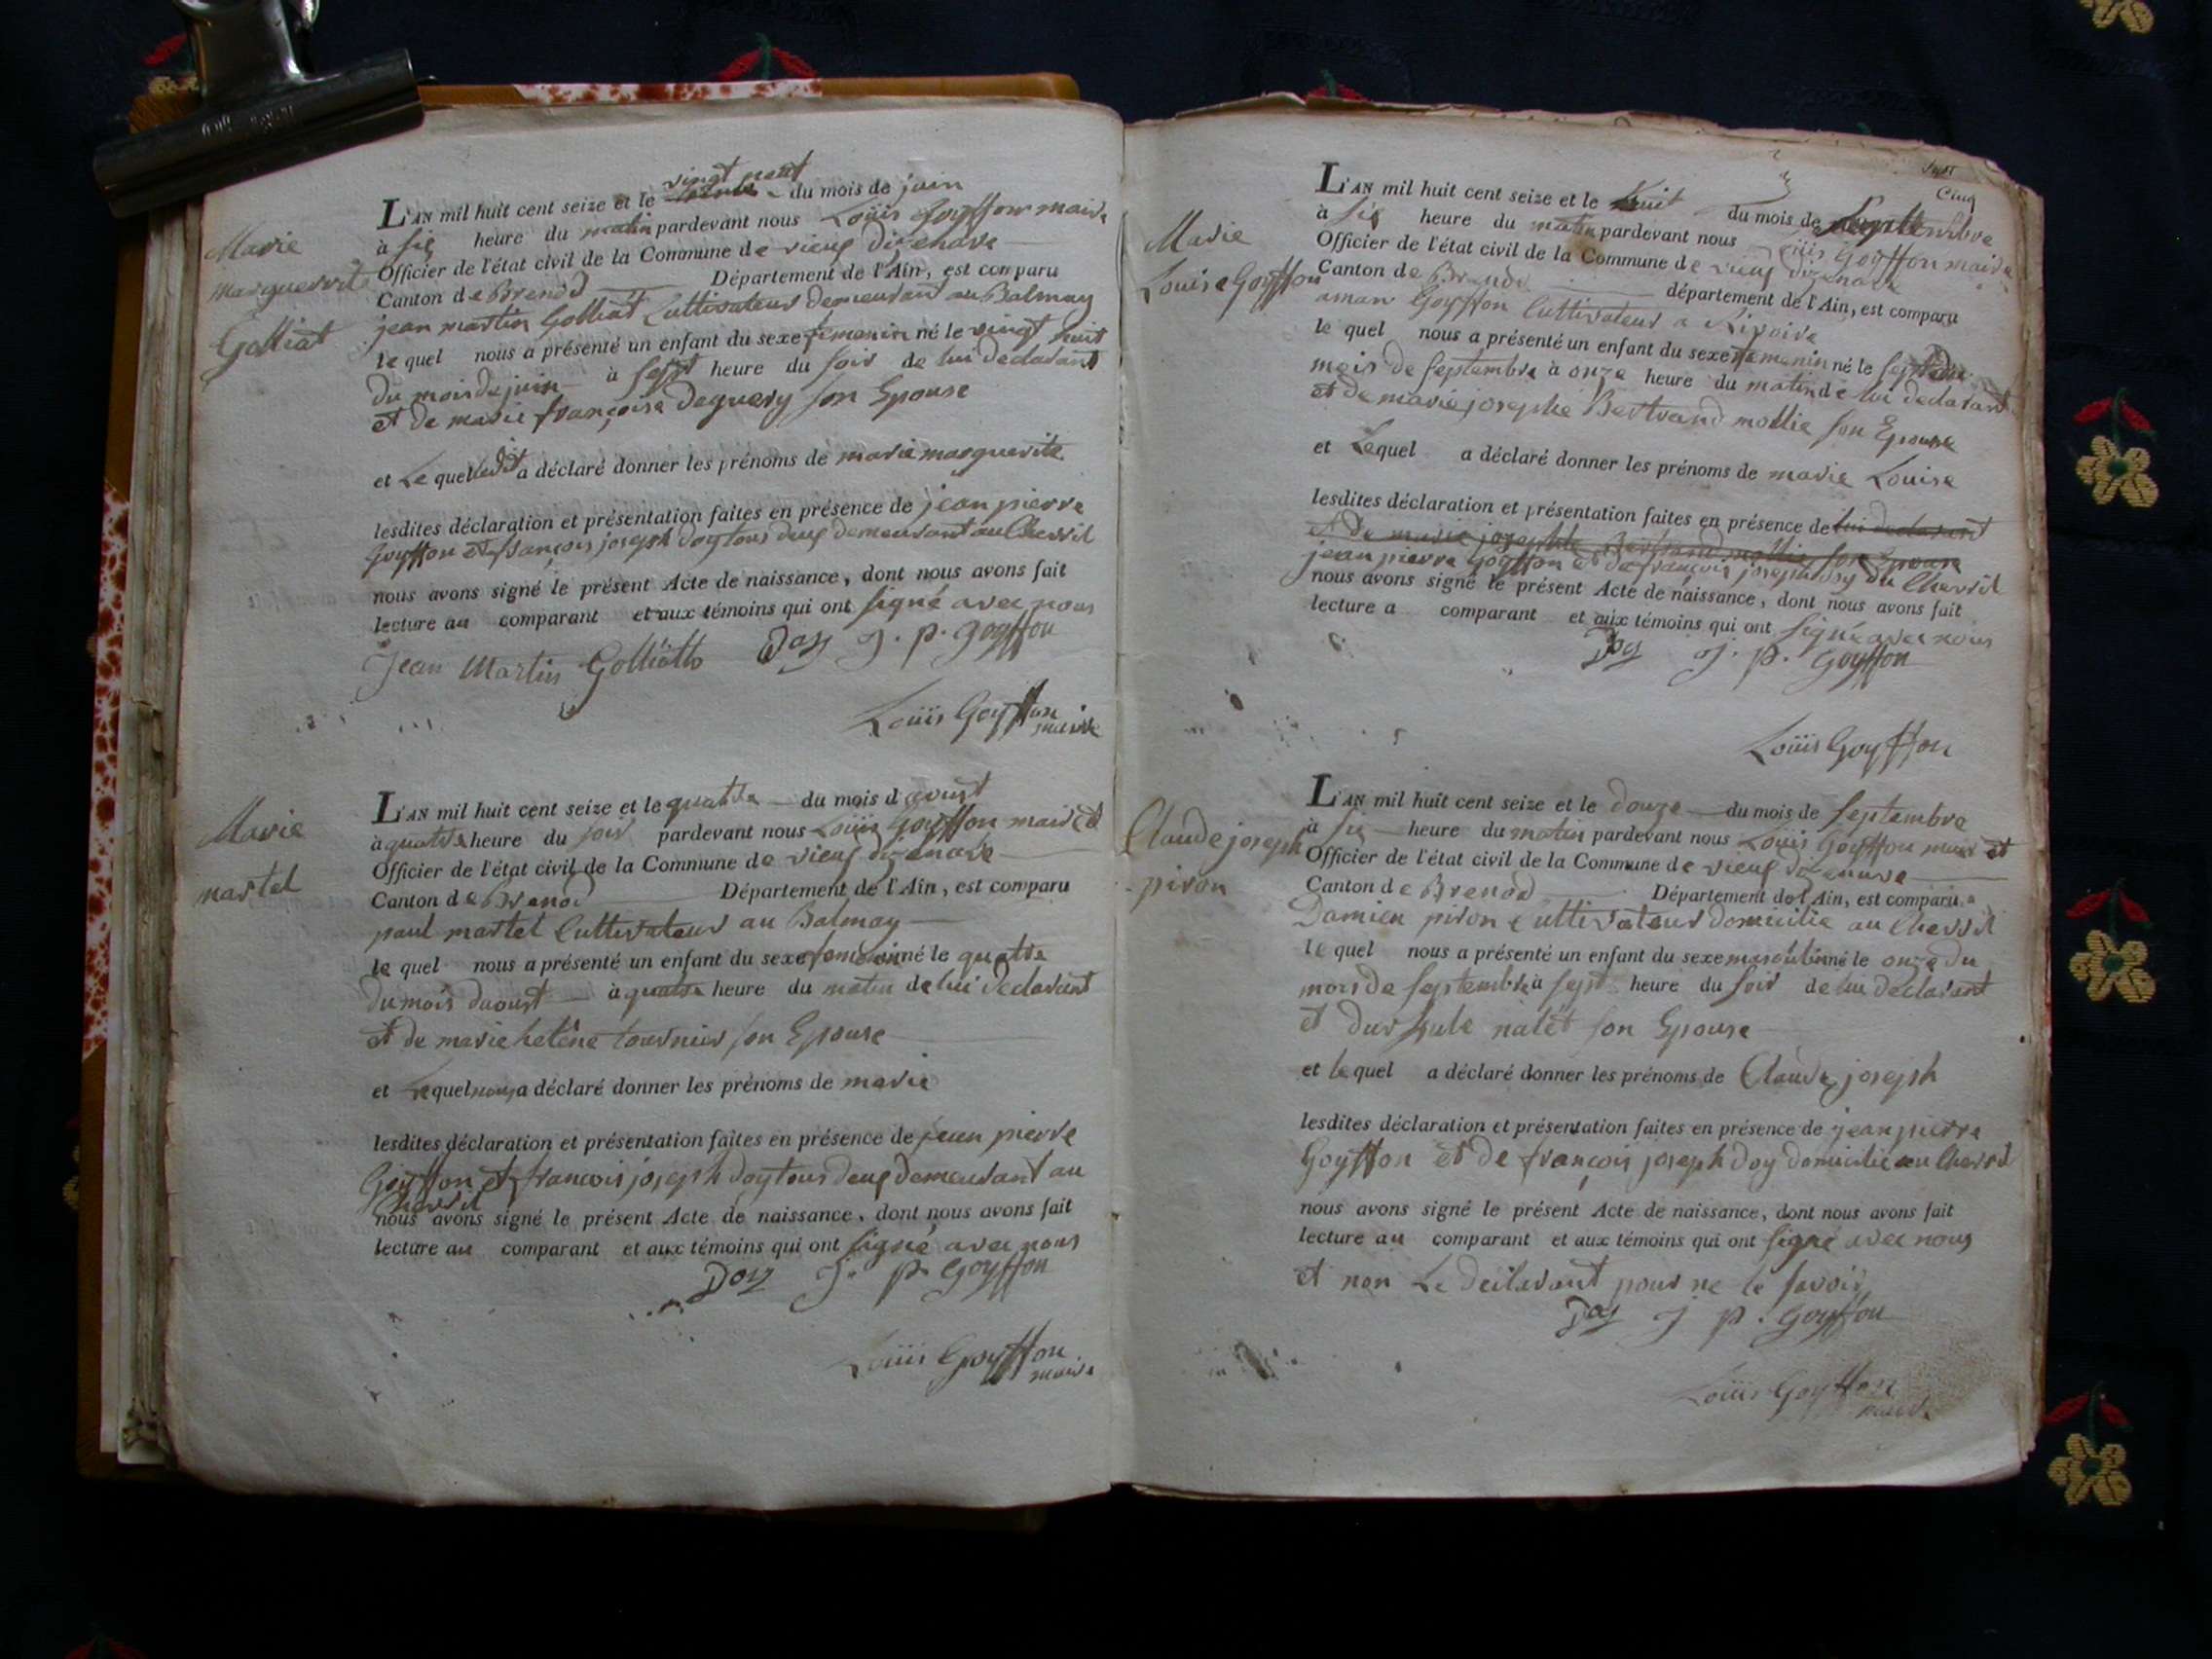 Marie
marguerite
Golliat
vingt neuf
L'AN mil huit cent seize et le du mois de juin
à six heure du matin pardevant nous Loüis Goyffon maire
Officier de l'état civil de la Commune de vieux dizenave
Canton de Brenod Département de l'Ain, est comparu
jean martin Golliat Cultivateur demeurant au Balmay
le quel nous a présenté un enfant du sexe femenin né le vingt huit
du mois de juin à sept heure du soir de lui declarant
et de marie françoise Deguery son Epouse
et Le quel a déclaré donner les prénoms de marie marguerite
lesdites déclaration et présentation faites en présence de jean pierre
Goyffon et françois joseph doy tous deux demeurant au Chevril
nous avons signé le présent Acte de naissance, dont nous avons fait
lecture au comparant et aux témoins qui ont signé avec nous
Jean Martin Golliatt Doy J. P. Goyffon
Loüis Goyffon
maire
Marie
martel
L'AN mil huit cent seize et le quatre du mois d aoust
à quatre heure du soir pardevant nous Loüis Goyffon maire et
Officier de l'état civil de la Commune de vieux dizenave
Canton de Brenod Département de l'Ain, est comparu
paul martel Cultivateur au Balmay
le quel nous a présenté un enfant du sexe femenin né le quatre
du mois daoust à quatre heure du matin de lui declarant
et de marie helêne tournier son Epouse
et Lequel nous a déclaré donner les prénoms de marie
lesdites déclaration et présentation faites en présence de jean pierre
Goyffon et francois joseph doy tous deux demeurant au
Chevril
nous avons signé le présent Acte de naissance, dont nous avons fait
lecture au comparant et aux témoins qui ont signé avec nous
Doy J. P. Goyffon
Loüis Goyffon
maire
Sept
Cinq
Marie
Louise Goyffon
L'AN mil huit cent seize et le huit du mois de Septembre
à six heure du matin pardevant nous Loüis Goyffon maire
Officier de l'état civil de la Commune de vieux dizenave
Canton de Brenod département de l'Ain, est comparu
aman Goyffon Cultivateur a Rivoire
le quel nous a présenté un enfant du sexe femenin né le sept du
mois de septembre à onze heure du matin de lui declarant
et de marie josephe Bertrand mollie son Epouse
et Lequel a déclaré donner les prénoms de marie Louise
lesdites déclaration et présentation faites en présence de lui declarant
et de marie josephe Bertrand mollie son Epouse
jean pierre Goyffon et de françois joseph doy du Chevril
nous avons signé le présent Acte de naissance, dont nous avons fait
lecture a comparant et aux témoins qui ont signé avec nous
Doy J. P. Goyffon
Loüis Goyffon
Claude joseph
piron
L'AN mil huit cent seize et le douze du mois de septembre
à six heure du matin pardevant nous Loüis Goyffon maire et
Officier de l'état civil de la Commune de vieux dizenave
Canton de Brenod Département de l'Ain, est comparu
Damien piron Cultivateur domicilie au Chevril
le quel nous a présenté un enfant du sexe masculin né le onze du
mois de septembre à sept heure du soir de lui declarant
et dursule nalet son Epouse
et lequel a déclaré donner les prénoms de Claude joseph
lesdites déclaration et présentation faites en présence de jean pierre
Goyffon et de françois joseph doy domicilie au Chevril
nous avons signé le présent Acte de naissance, dont nous avons fait
lecture au comparant et aux témoins qui ont signé avec nous
et non Le declarant pour ne le savoir
Doy J P. Goyffon
Loüis Goyffon
maire